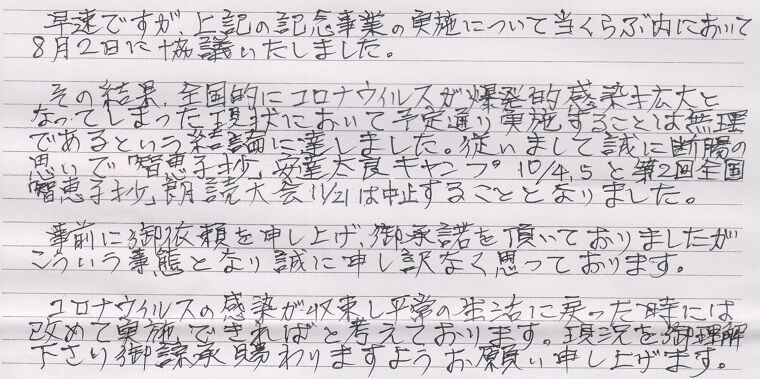 早速ですが、上記の記念事業の実施について当くらぶ内において
8月2日に協議いたしました。
その結果、全国的にコロナウィルスが爆発的感染拡大と
なってしまった現状において予定通り実施することは無理
であるという結論に達しました。従いまして誠に断腸の
思いで「智恵子抄」安達太良キャンプ 10/4,5 と第2回全国
「智恵子抄」朗読大会 11/21 は中止することとなりました。
事前に御依頼を申し上げ、御承諾を頂いておりましたが
こういう事態となり誠に申し訳なく思っております。
コロナウィルスの感染が収束し平常の生活に戻った時には
改めて実施できればと考えております。現況を御理解
下さり御諒承賜わりますようお願い申し上げます。